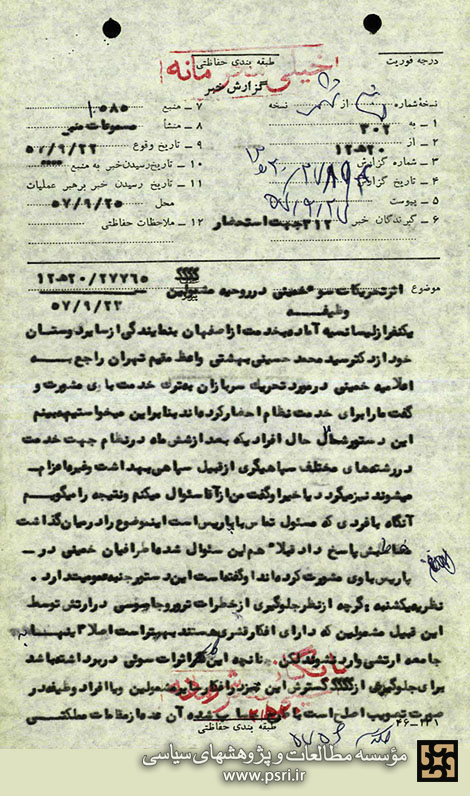 خیلی محرمانه
طبقه بندی حفاظتی
درجه فوریت
گزارش خبر
نسخه شماره از نسخه
۱ ـ به ۳۰۲
۲ ـ از ۲۰ﻫ۱۲
۳ ـ شماره گزارش
۴ ـ تاریخ گزارش
۵ ـ پیوست
۶ ـ گیرندگان خبر ۳۱۲ جهت استحضار
۷ ـ منبع ۱۰۵۸۵
۸ ـ منشأ مسموعات منبع
۹ ـ تاریخ وقوع ۵۷/۹/۲۲
۱۰ ـ تاریخ رسیدن خبر به منبع
۱۱ ـ تاریخ رسیدن خبر برهبر عملیات
محل ۵۷/۹/۲۵
۱۲ ـ ملاحظات حفاظتی
۲۰ﻫ۱۲/۲۷۷۶۵
موضوع اثر تحریکات سوء خمینی در روحیه مشمولین
وظیفه
۵۷/۹/۲۳
یکنفر از لیسانسیه آماده بخدمت از اصفهان بنمایندگی از سایر دوستان
خود از دکتر سید محمد حسینی بهشتی واعظ مقیم تهران راجع به
اعلامیه خمینی در مورد تحریک سربازان بترک خدمت با وی مشورت و
گفت ما را برای خدمت نظام احضار کرده اند بنابراین میخواستیم ببینم
این دستور شامل حال افرادیکه بعد از شش ماه در نظام جهت خدمت
در رشته های مختلف سپاهیگری از قبیل سپاهی بهداشت وغیره اعزام
میشوند نیز میگردد یا خیر او گفت من از آقا سئوال میکنم و نتیجه را میگویم
آنگاه با فردی که مسئول تماس با پاریس است اینموضوع را در میان گذاشت
مخاطبش پاسخ داد قبلا" هم این سئوال شده اطرافیان خمینی در ـ
پاریس با وی مشورت کرده اند او گفته است این دستور جنبه عمومیت دارد .
نظریه یکشنبه وگرچه از نظر جلوگیری از خطرات ترور و جاسوسی در ارتش توسط
این قبیل مشمولین که دارای افکار قشری هستند بهتر است اصلا" اینها به
جامعه ارتشی وارد نشوند لکن چنانچه این کار اثرات سوئی در برداشته باشد
برای جلوگیری از گسترش این چیز در افکار سایر مشمولین ویا افراد وظیفه در
صورت تصویب اصلح است با آن عده از مقامات مملکتی
طبقه بندی حفاظتی
۴۶-۲۳۱
بایگانی شود
مؤسسه مطالعات و پژوهشهای سیاسی
www.psri.ir